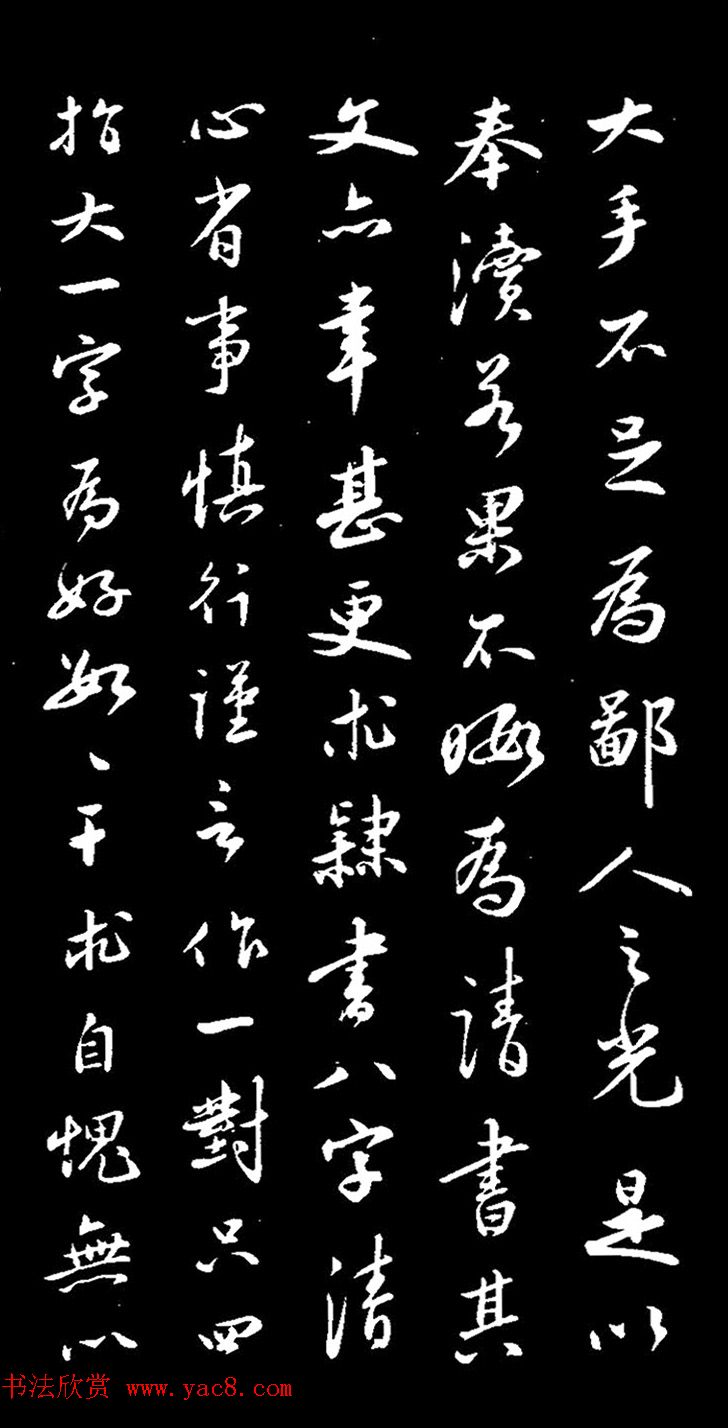 大手不足為鄙人之光是以
奉瀆若果不晦為請書其
文亦幸甚更求隸書八字清
心省事慎行謹言作一對只四
指大一字為好數〻干求自愧無以
书法欣赏 www.yac8.com